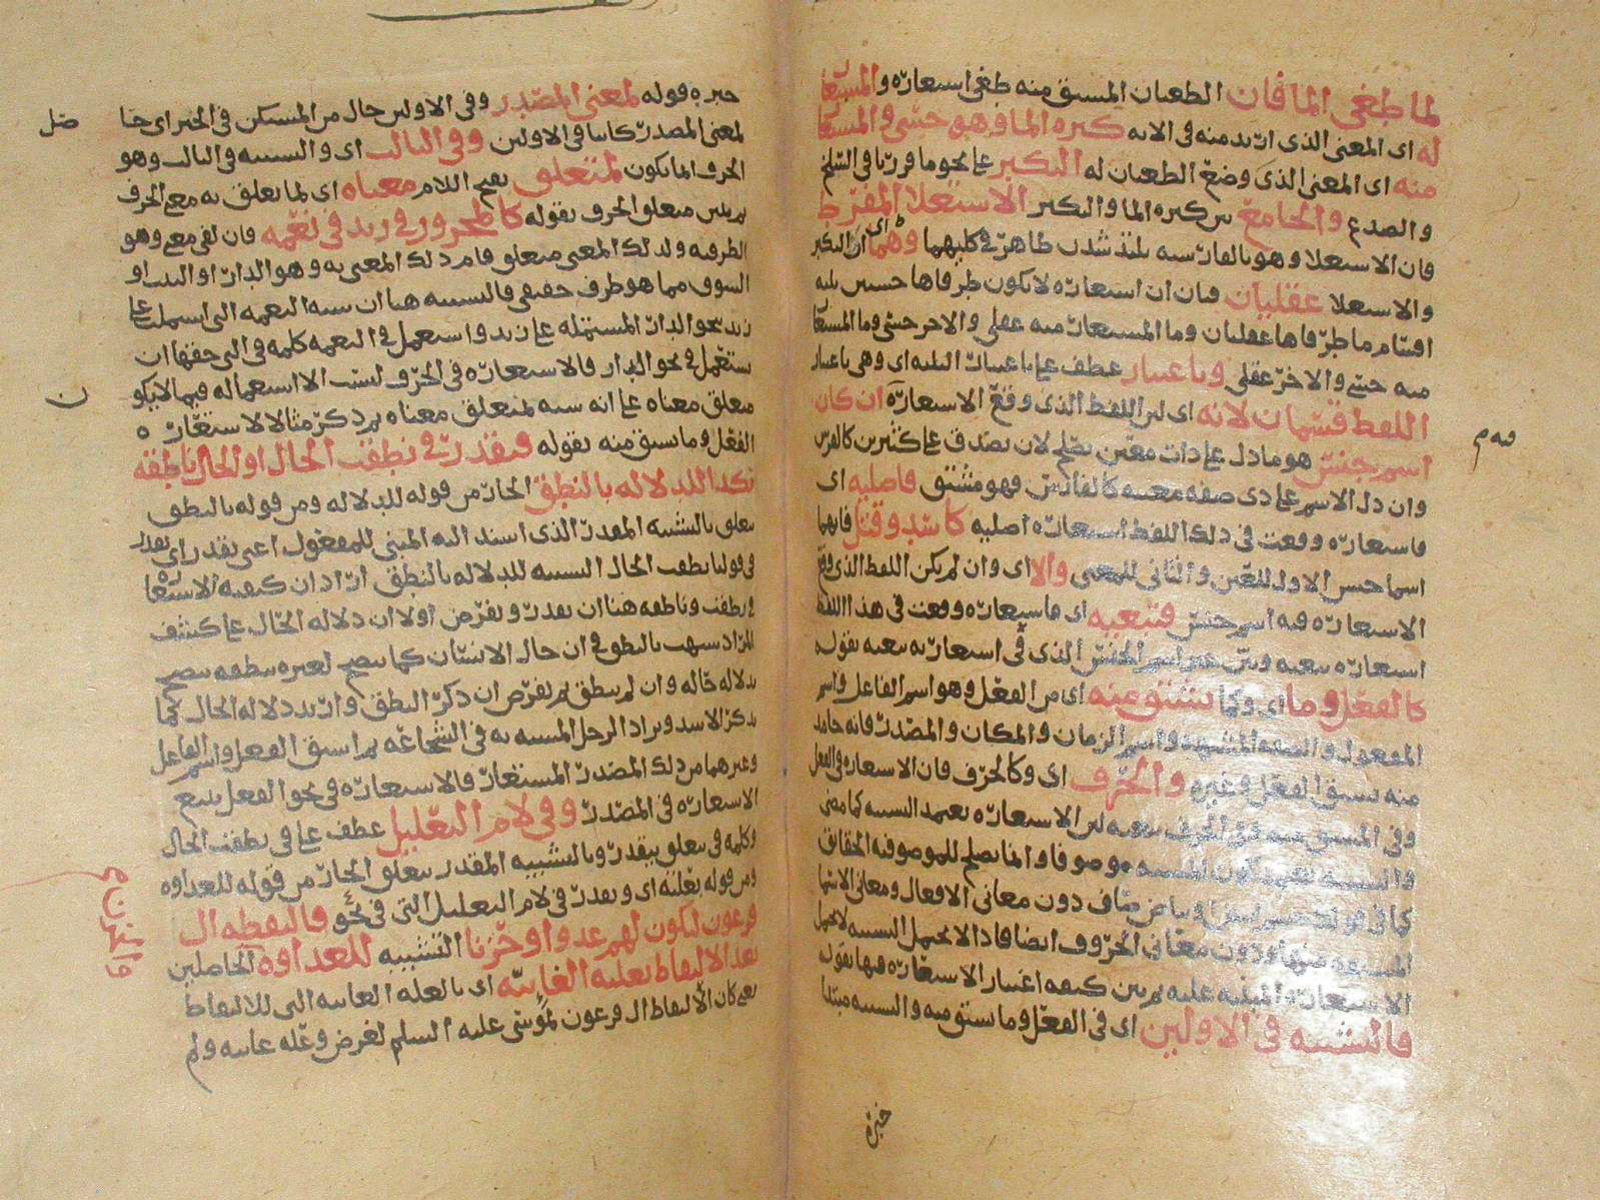 لما طغى الما فان الطغيان المستق منه طغى استعاره والمستعا
له اى المعنى الذى اريد منه فى الايه كثره الما وهو حسّى والمستعا
منه اى المعنى الذى وضع الطغيان له التكبر على نحو ما قررنا فى السلخ
والصدع والجامع بين كثره الما والتكبر الاستعلا المفرط
فان الاستعلا وهو بالفارسيه بلند شدن ظاهر فى كليهما وهما اى التكبر
والاستعلا عقليان فبان ان استعاره لا يكون طرفاها حسيين ثلثه
اقسام ما طرفاها عقليان وما المستعار منه عقلى والاخر حسى وما المستعا
منه حسى والاخر عقلى وباعتبار عطف على باعتبار الثلثه اى وهى باعتبار
اللفظ قسمان لانه اى لان اللفظ الذى وقع الاستعاره ان كان
اسم جنس هو ما دل على ذات معين يصلح لان يصدق على كثيرين كالفرس
وان دل الاسم على ذى صفه معينه كالفارس فهو مشتق فاصليه اى
فاستعاره وقعت فى ذلك اللفظ استعاره اصليه كاسد وقتل فانهما
اسما جنس الاول للعين والثانى للمعنى والا اى وان لم يكن اللفظ الذى وقع
الاستعاره فيه اسم جنس فتبعيه اى فاستعاره وقعت فى هذا اللفظ
استعاره تبعيه وبين غير اسم الجنس الذى فى استعارته تبعيه بقوله
كالفعل وما اى وكما يشتق منه اى من الفعل وهو اسم الفاعل واسم
المفعول والصفه المشبهه واسم الزمان والمكان والمصدر فانه جامد
منه يستق الفعل وغيره والحرف اى وكالحرف فان الاستعاره فى الفعل
وفى المستق منه وفى الحرف تبعيه لان الاستعاره يعتمد التشبيه كما مضى
والتشبيه يعتمد كون المشبه موصوفا وانما يصلح للموصوفيه الحقايق
كما فى قولك جسم ابيض وبياض صاف دون معانى الافعال ومعانى الاسما
المشتقه منها ودون معانى الحروف ايضا فاذا لا يحتمل التشبيه لا يحتمل
الاستعاره المبتنيه عليه ثم بين كيفيه اعتبار الاستعاره فيها بقوله
فالتشبيه فى الاولين اى فى الفعل وما يشتق منه والتشبيه مبتدا
خبره
خبره قوله لمعنى المصدر وفى الاولين حال من المستكن فى الخبر اى حنا
لمعنى المصدر كاينا فى الاولين وفى الثالث اى والتشبيه فى الثالث وهو
الحرف انما يكون لمتعلق بفتح اللام معناه اى لما يعلق به معنى الحرف
ثم بين متعلق الحرف بقوله كالمجرور فى زيد فى نعمه فان لفى معنى وهو
الظرفيه ولذلك المعنى متعلق قام ذلك المعنى به وهو الدار او البلد او
السوق مما هو ظرف حقيقى فالتشبيه هنا ان شبه النعمه التى اشتملت على
زيد بنحو الدار المشتمله على زيد واستعمل فى النعمه كلمه فى التى حقها ان
يستعمل فى نحو الدار فالاستعاره فى الحرف ليست الا استعماله فيما لا يكو
متعلق معناه على انه شبه لمتعلق معناه ثم ذكر مثالا لاستعاره
الفعل وما يستق منه بقوله فيقدر فى نطقت الحال او الحال ناطقه
بكذا للدلاله بالنطق الجار من قوله للدلاله ومن قوله بالنطق
يتعلق بالتشبيه المقدر الذى اسند اليه المبنى للمفعول اعنى يقدر اى يقدر
فى قولنا نطقت الحال التشبيه للدلاله بالنطق اراد ان كيفيه الاستعاره
فى نطقت وناطقه هنا ان يقدر ويفرض اولا ان دلاله الحال على كشف
المراد شبهت بالنطق فى ان حال الانسان كما يتضح لغيره بنطقه يتضح
بدلاله حاله وان لم ينطق ثم يفرض ان ذكر النطق واريد دلاله الحال كما
يذكر الاسد ويراد الرجل المشبه به فى الشجاعه ثم استق الفعل واسم الفاعل
وغيرهما من ذلك المصدر المستعار فالاستعاره فى نحو الفعل يتبع
الاستعاره فى المصدر وفى لام التعليل عطف على فى نطقت الحال
وكلمه فى متعلق بيقدر وبالتشبيه المقدر يتعلق الجار من قوله للعداوه
ومن قوله بعلته اى ويقدر فى لام التعليل التى فى نحو فالتقطه ال
فرعون ليكون لهم عدوا وحزنا التشبيه للعداوه الحاصلين
بعد الالتقاط بعلته الغاييّه اى بالعله الغاييه التى للالتقاط
يعنى كان الالتقاط ال فرعون لموسى عليه السلم لغرض وعله غاييه ولم